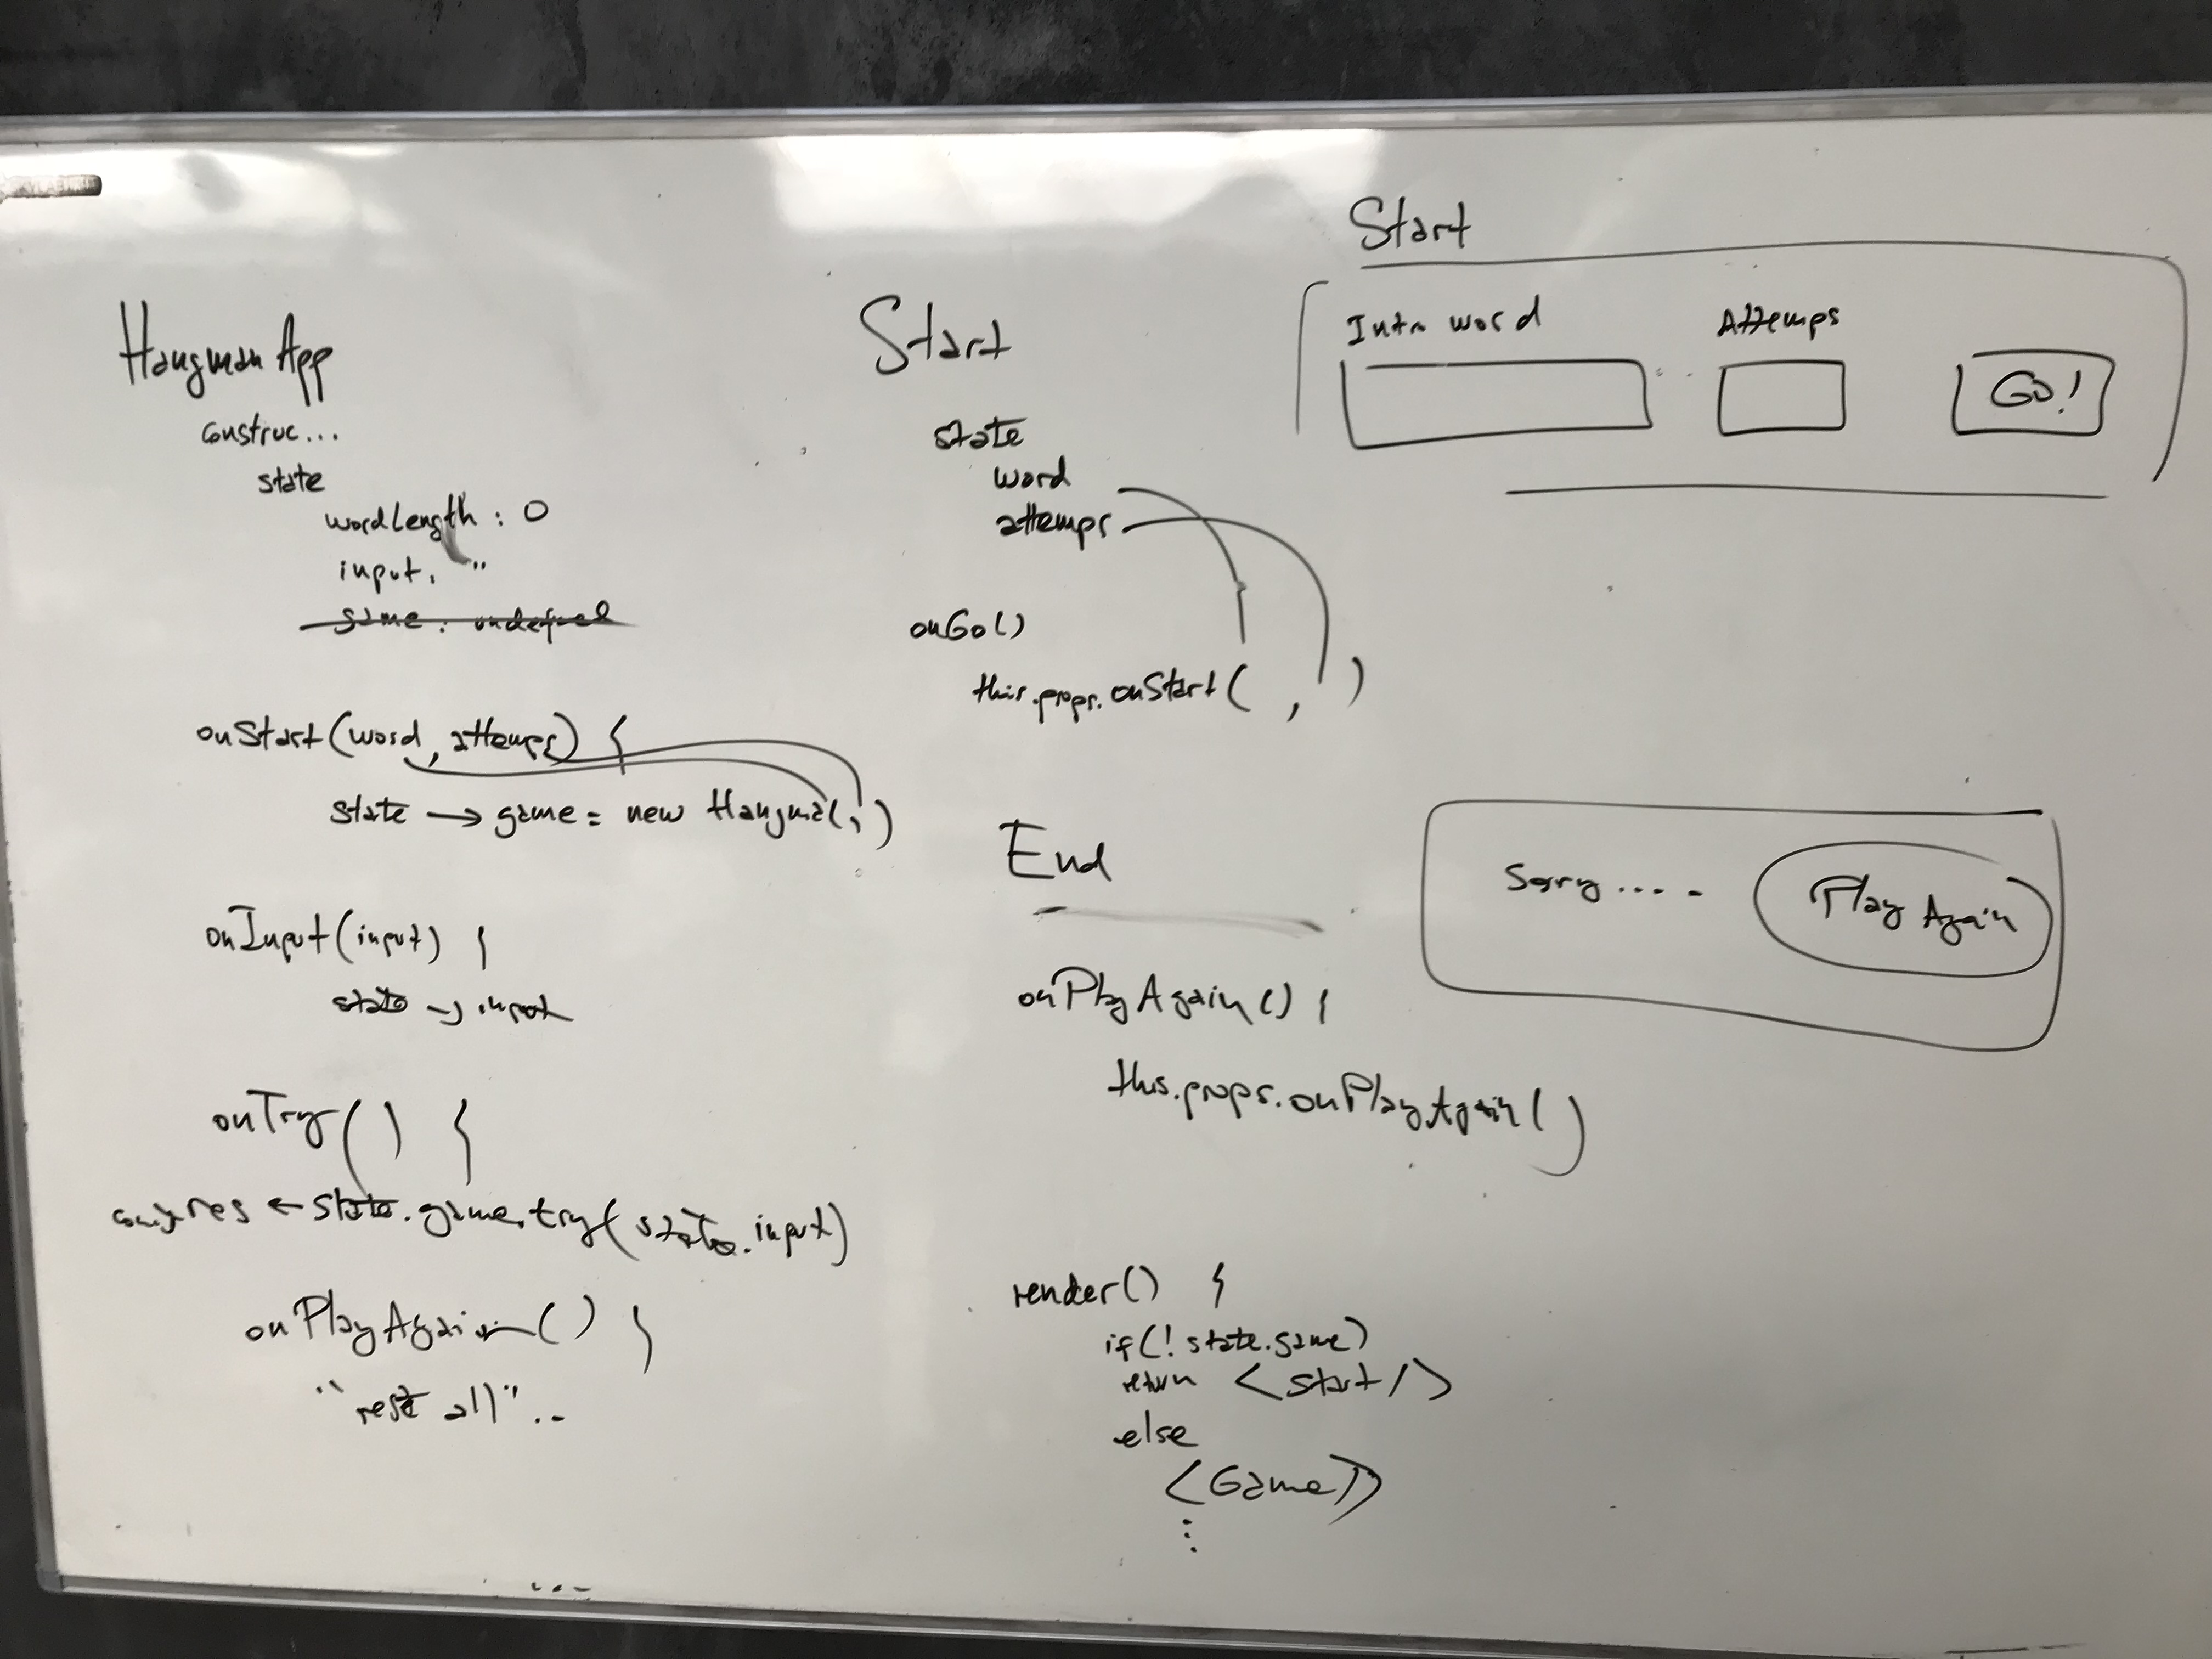 Hangman App
construc...
state
wordLength : 0
input. "
game : undefined
onStart(word, attemps) {
state → game = new Hangma( , )
onInput(input) {
state → input
onTry() {
res ← state.game.try(state.input)
onPlayAgain() {
"reset all"..
Start
state
word
attemps
onGo()
this.props.onStart( , )
End
onPlayAgain() {
this.props.onPlayAgain()
render() {
if(! state.game)
return <Start/>
else
<Game/>
⋮
Start
Intro word Attemps
GO!
Sorry .... Play Again